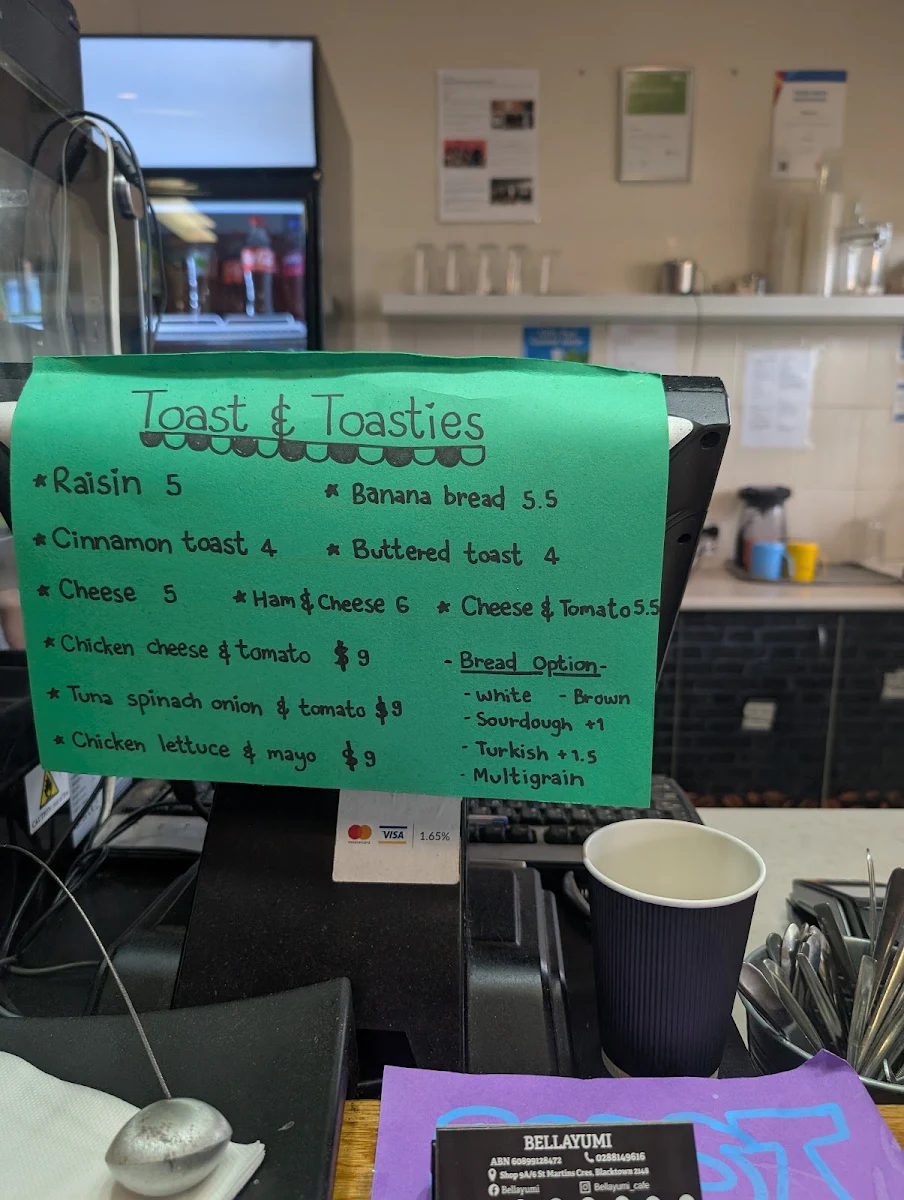 Toast & Toasties
* Raisin 5
* Banana bread 5.5
* Cinnamon toast 4
* Buttered toast 4
* Cheese 5
* Ham & Cheese 6
* Cheese & Tomato 5.5
* Chicken cheese & tomato $9
* Tuna spinach onion & tomato $9
* Chicken lettuce & mayo $9
- Bread Option -
- white - Brown
- Sourdough +1
- Turkish +1.5
- Multigrain
mastercard VISA 1.65%
BELLAYUMI
ABN 60899128472 0288149616
Shop 9A/6 St Martins Cres, Blacktown 2148
Bellayumi Bellayumi_cafe